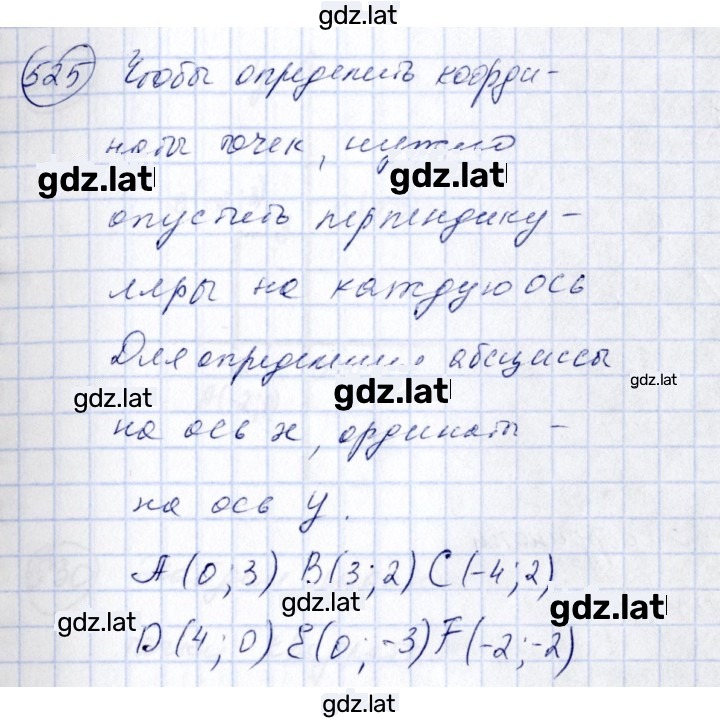 gdz.lat
525 Чтобы определить коорди-
наты точек, нужно
gdz.lat gdz.lat
опустить перпендику-
ляры на каждую ось
Для определения абсциссы
gdz.lat gdz.lat gdz.lat
на ось х, ординаты -
на ось у.
A(0; 3) B(3; 2) C(-4; 2)
gdz.lat gdz.lat gdz.lat
D(4; 0) E(0; -3) F(-2; -2)
gdz.lat